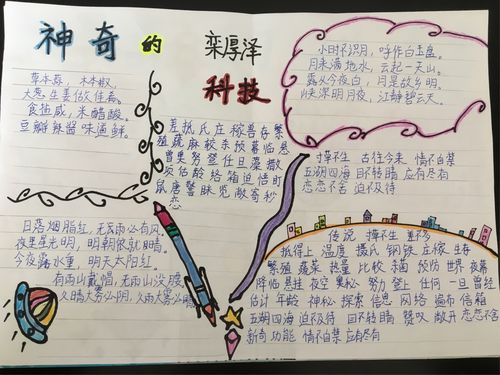 神奇的
栾厚泽
科技
草本春，木本椒，
大葱生姜做佳肴。
食盐咸，米醋酸，
豆瓣辣酱味道鲜。
差抵氏庄稼善存繁
殖蔬麻较杀预幕临悬
曾奥努登仕旦藻撒
安估龄络箱迫惜盯
眼唐警眯览敞奇秒
恋
小时不识月，呼作白玉盘。
月来满地水，云起一天山。
露从今夜白，月是故乡明。
峡深明月夜，江静碧云天。
撑不生 古往今来 情不自禁
五湖四海 目不转睛 应有尽有
恋恋不舍 迫不及待
日落烟脂红，无雨必有风。
夜里星光明，明朝依就晴。
今夜露水重，明天太阳红。
有雨山戴帽，无雨山没腰。
久晴大雾必阴，久雨大雾必晴
传说 撑不生 差不多
抵得上 温度 摄氏 钢铁 庄稼 生存
繁殖 蔬菜 热量 比较 杀菌 预防 世界 夜幕
降临 悬挂 夜空 奥秘 努力 登上 任何 一旦 曾经
估计 年龄 神秘 探索 信息 网络 遍布 信箱
五湖四海 迫不及待 目不转睛 赞叹 敞开 恋恋不舍
新奇 功能 情不自禁 应有尽有